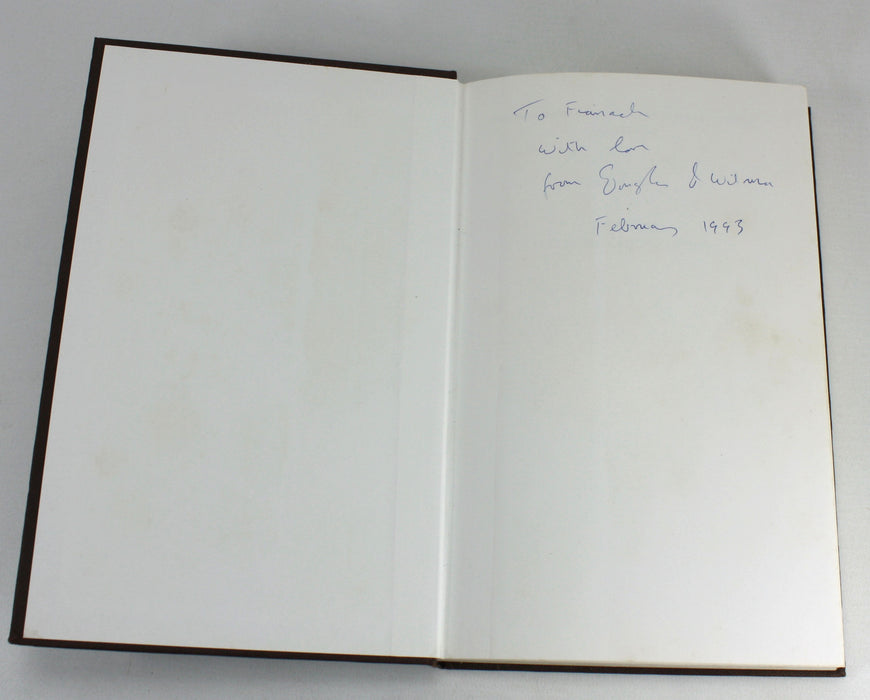 To
with love
from Douglas & Wilma
February 1993